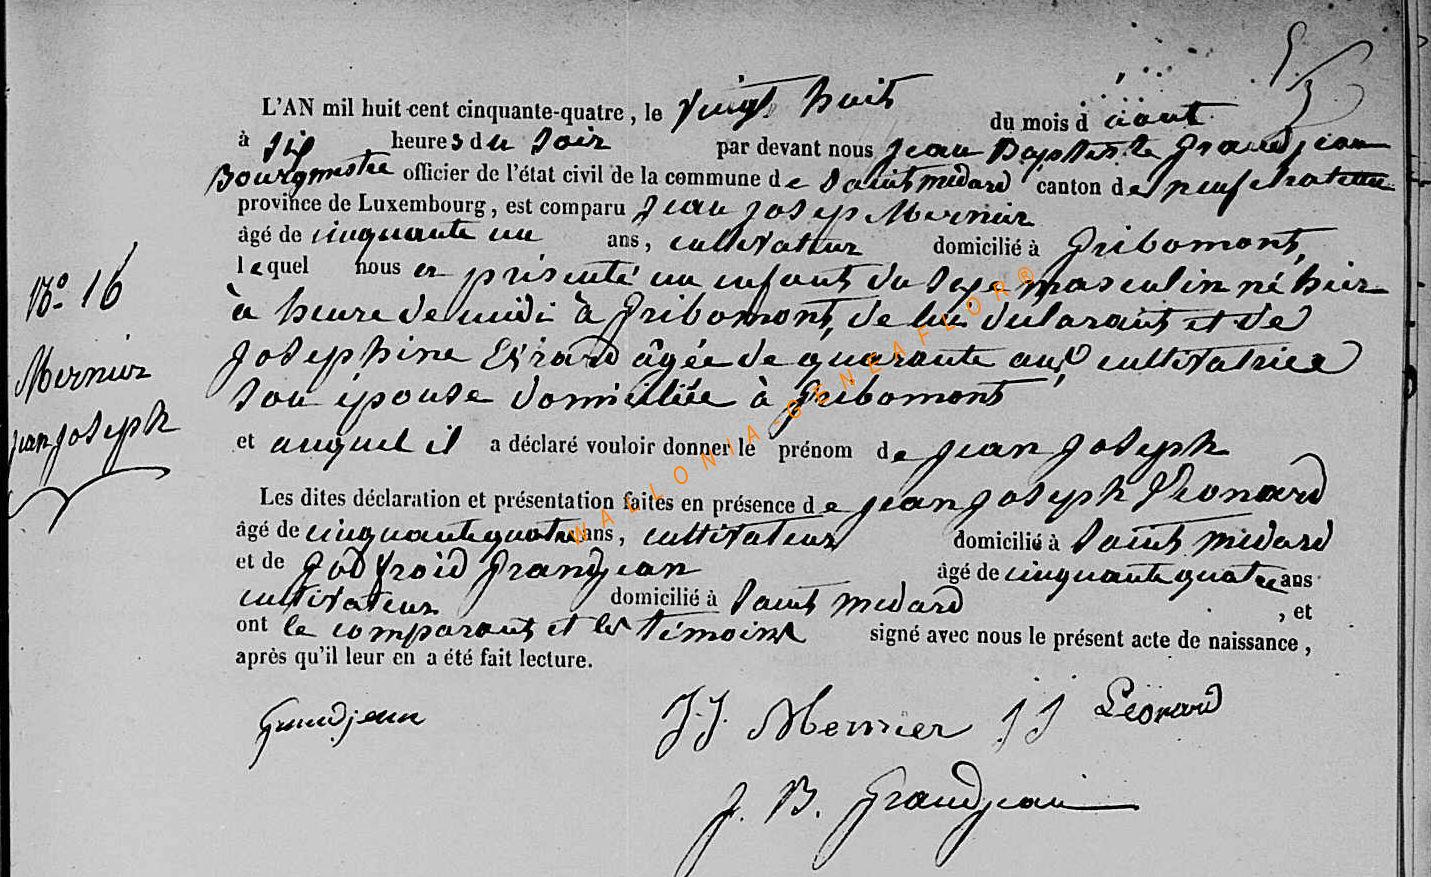 L'AN mil huit cent cinquante-quatre, le vingt huit du mois d'août
à six heures du soir par devant nous Jean Baptiste Grandjean
Bourgmestre officier de l'état civil de la commune de Saint medard canton de neufchateau
province de Luxembourg, est comparu Jean Josep Mernier
âgé de cinquante un ans, cultivateur domicilié à Gribomont,
lequel nous a présenté un enfant du sexe masculin né hier
N° 16
à heure de midi à Gribomont, de lui déclarant et de
Mernier
Josephine Evrard âgée de quarante ans cultivatrice
Jean Joseph
son épouse domiciliée à Gribomont
et auquel il a déclaré vouloir donner le prénom de Jean Joseph
Les dites déclaration et présentation faites en présence de Jean Joseph Léonard
âgé de cinquante quatre ans, cultivateur domicilié à Saint medard
et de Godfroid Grandjean âgé de cinquante quatre ans
cultivateur domicilié à Saint medard, et
ont le comparant et les témoins signé avec nous le présent acte de naissance,
après qu'il leur en a été fait lecture.
Grandjean J. J. Mernier J J Léonard
J. B. Grandjean
WALLONIA-GENEAFLOR®